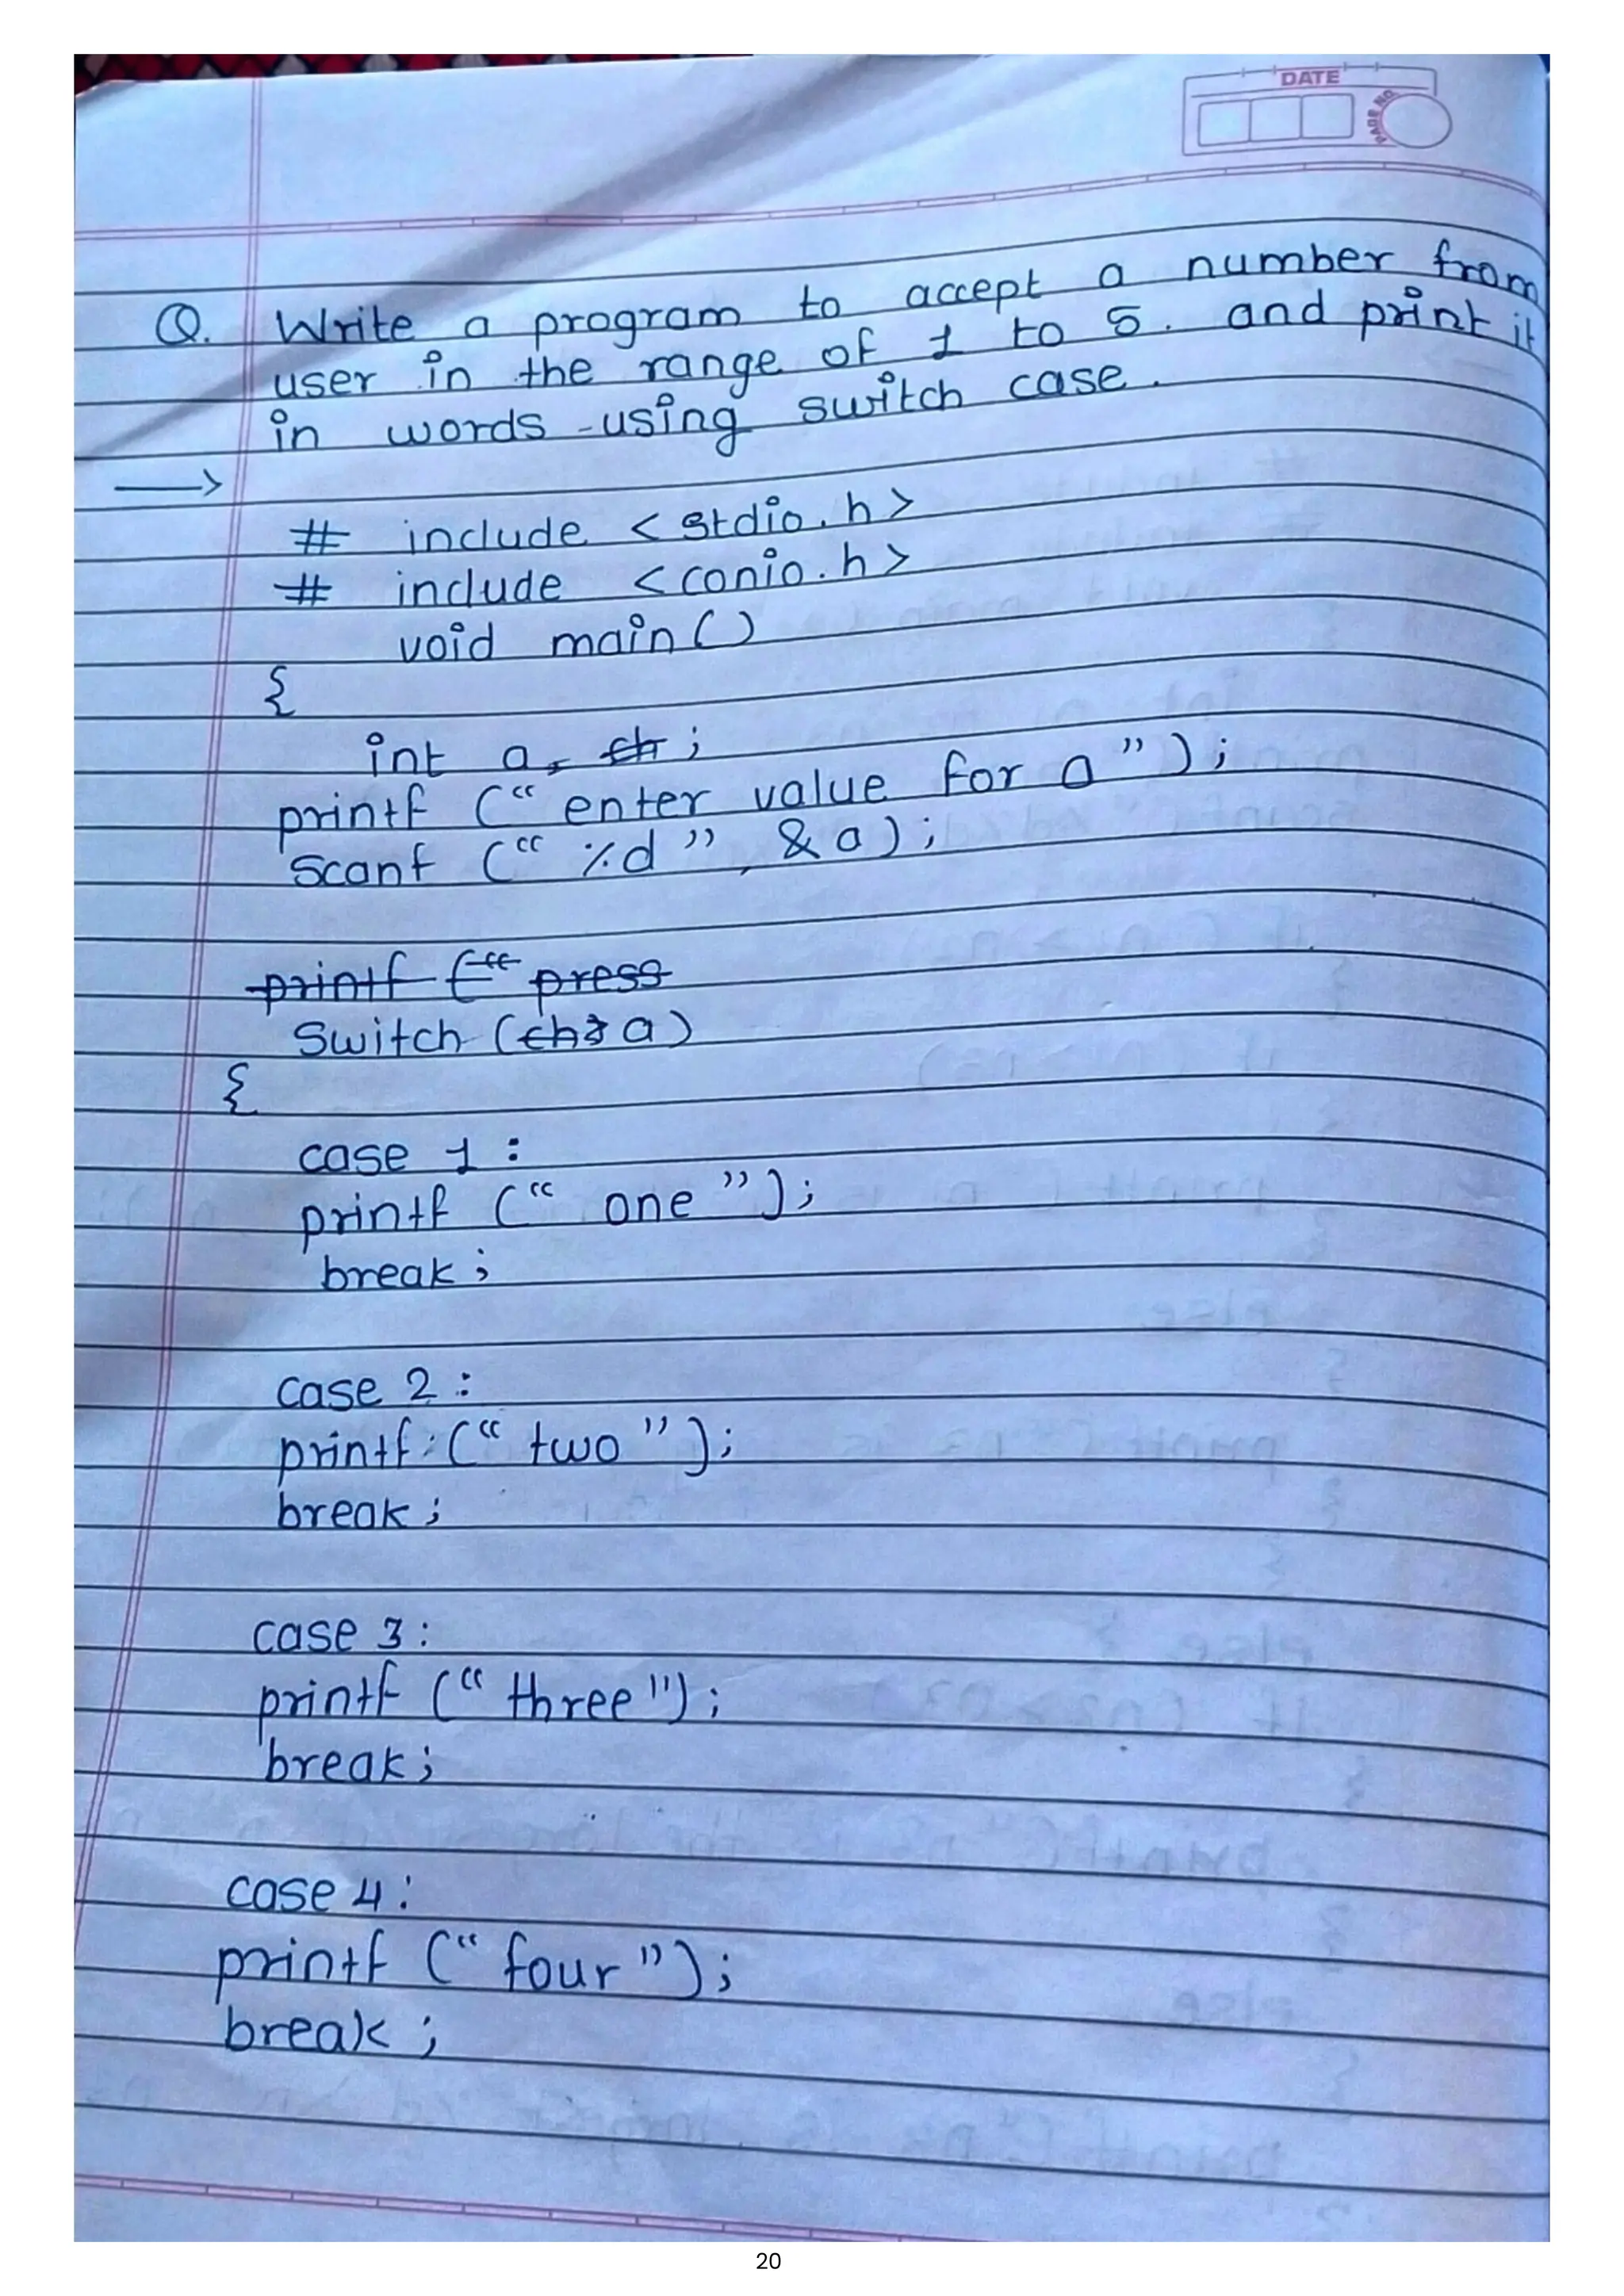 DATE
PAGE NO.
Q. Write a program to accept a number from
user in the range of 1 to 5. and print it
in words using switch case.
→
# include <stdio.h>
# include <conio.h>
void main()
{
int a, ch;
printf (“ enter value for a ”);
Scanf (“ %d ”, &a);
printf (“ press
Switch (ch a)
{
case 1 :
printf (“ one ”);
break;
case 2 :
printf (“ two ”);
break;
case 3 :
printf (“ three ”);
break;
case 4 :
printf (“ four ”);
break;
20